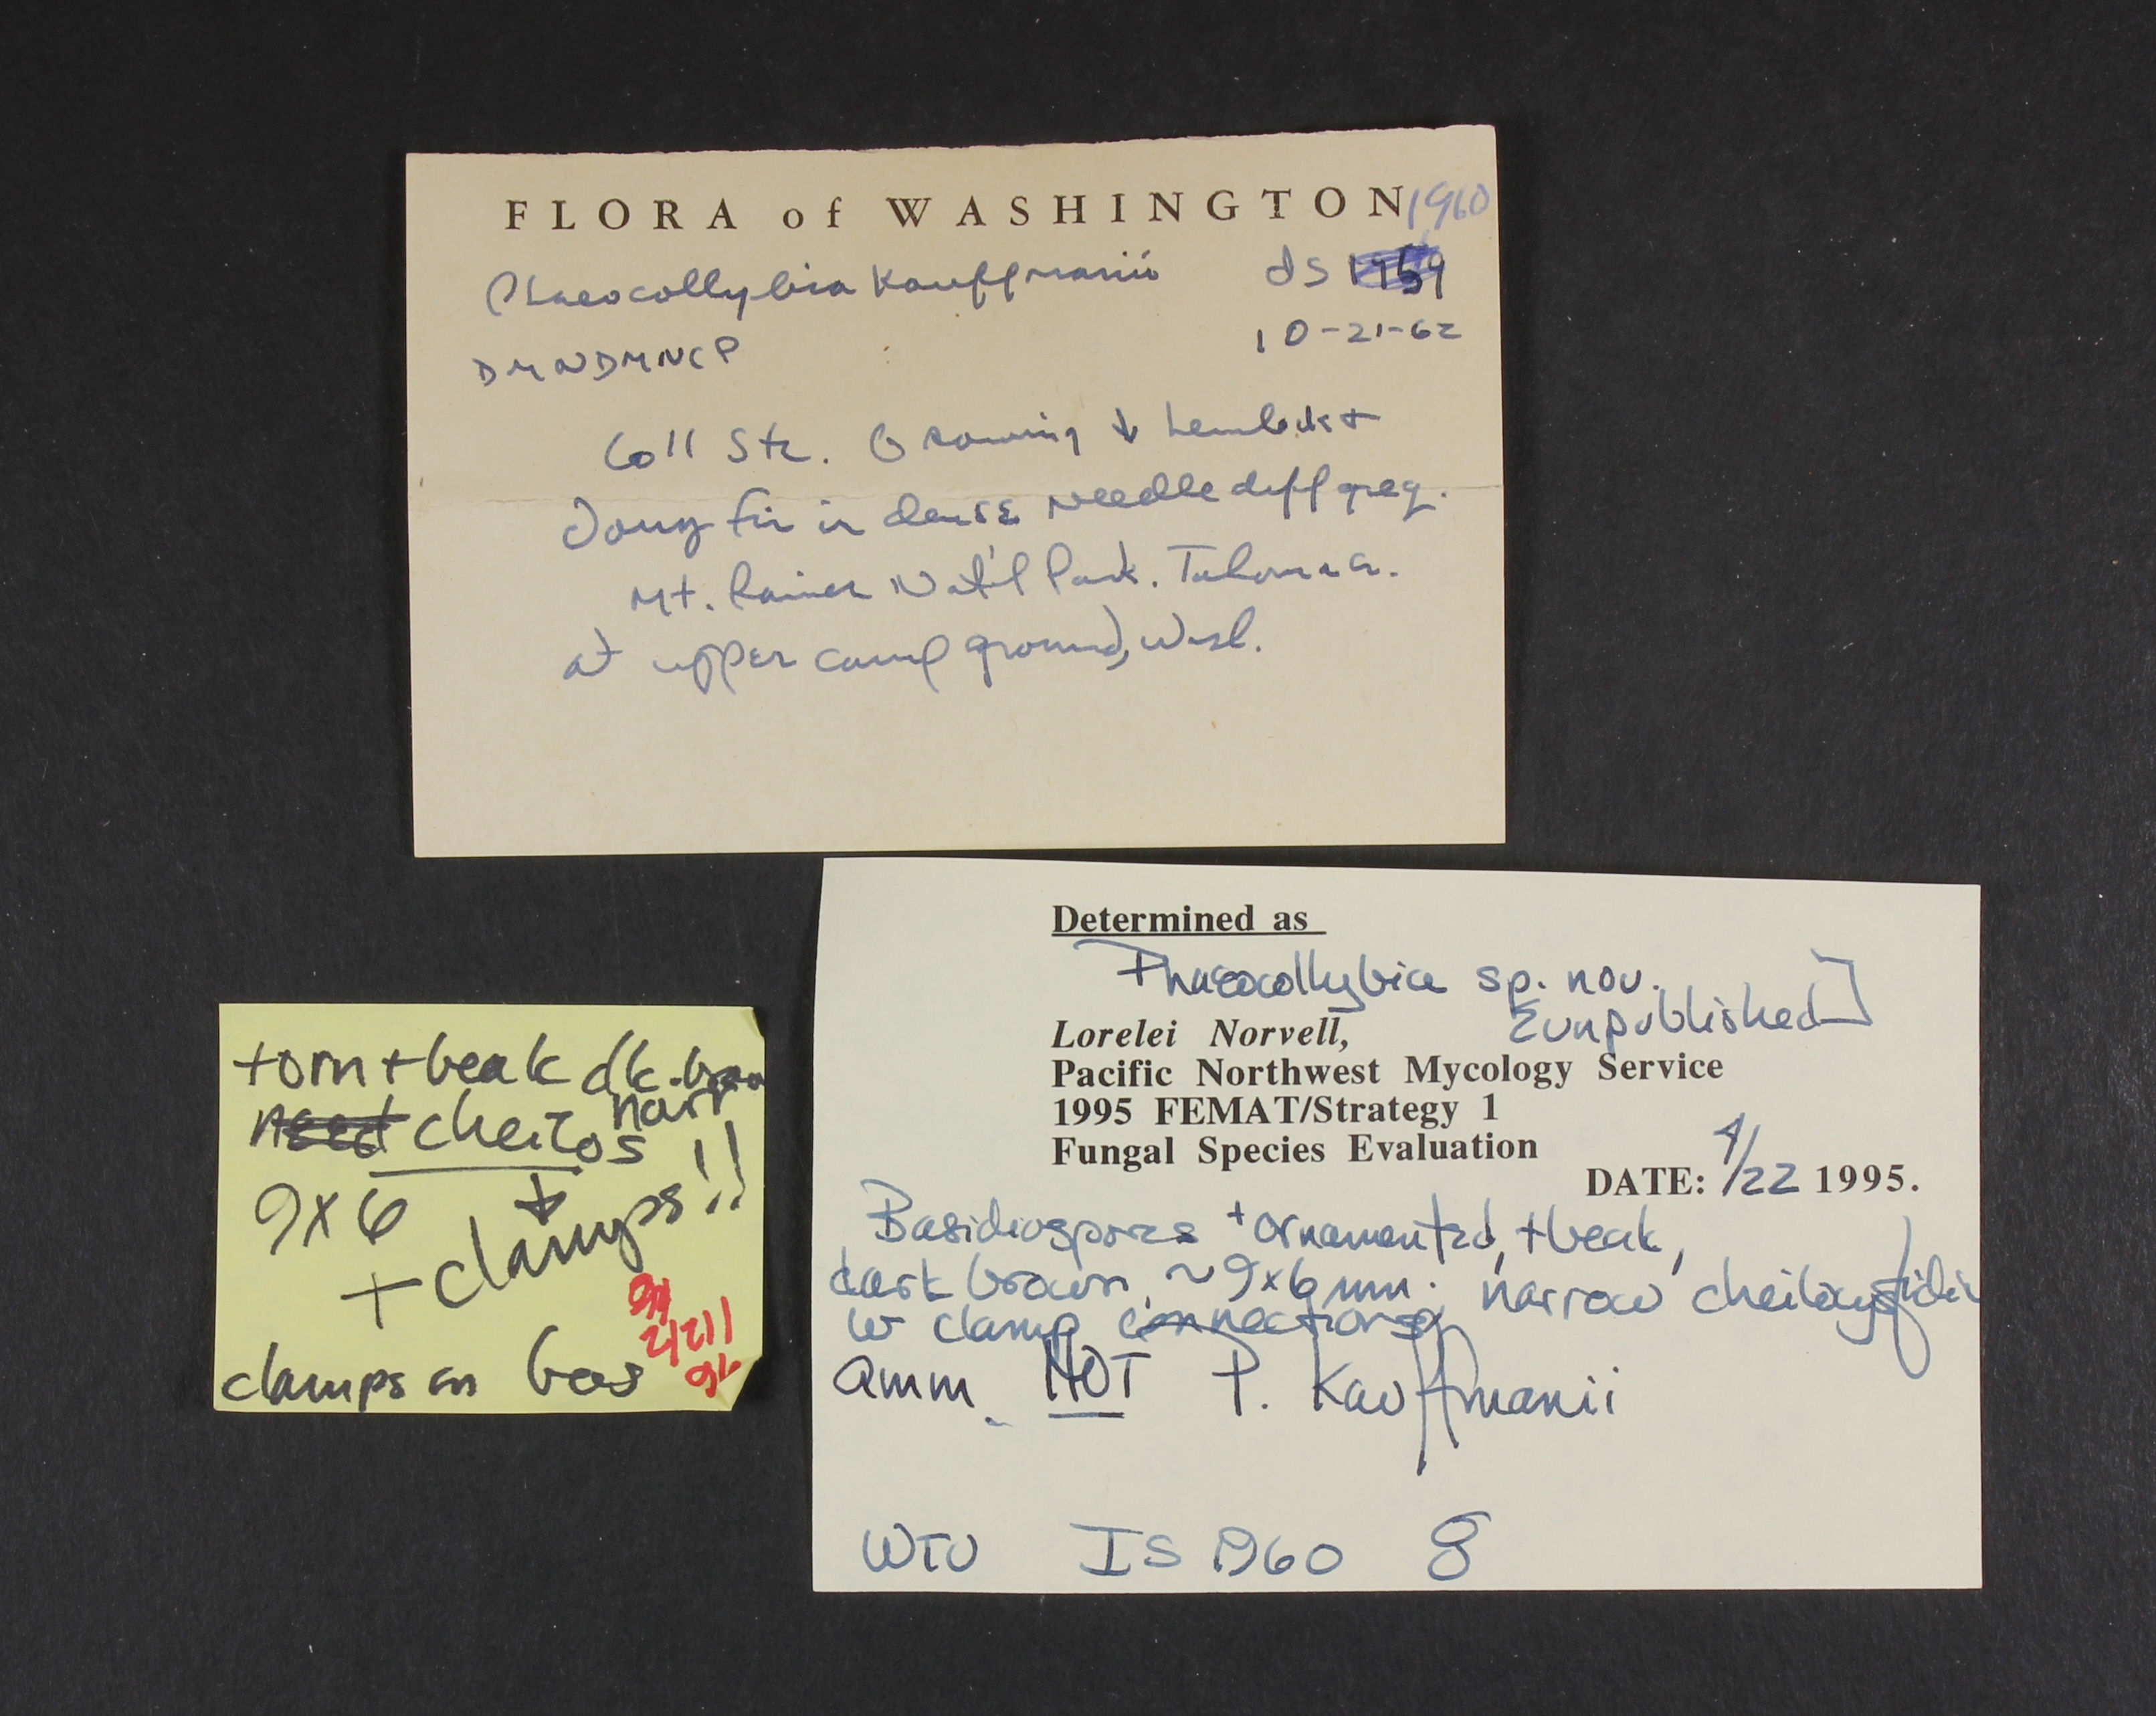 FLORA of WASHINGTON 1960
Phaeocollybia Kauffmanii dS
DMNDMNCP 10-21-62
Coll Stz. Growing ↓ hemlock +
Doug fir in dense needle duff greg.
Mt. Rainier Nat'l Park. Tahoma Cr.
at upper camp ground, Wash.
Determined as
Phaeocollybia sp. nov.
[unpublished]
Lorelei Norvell,
Pacific Northwest Mycology Service
1995 FEMAT/Strategy 1
Fungal Species Evaluation
DATE: 4/22 1995.
Basidiospores +ornamented, +beak,
dark brown, ~9x6 µm. 'narrow' cheilocystidia
w clamp connections
Qmm. NOT P. Kauffmanii
WTU IS 1960 8
+orn +beak dk.brn
need cheilos narr!!
9x6 ↓
+ clamps!!
clamps on bas